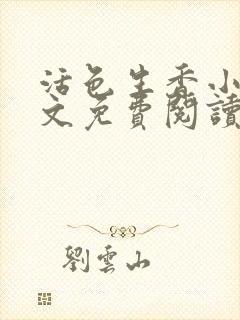 活色生香小
文免費閱讀
劉雲山